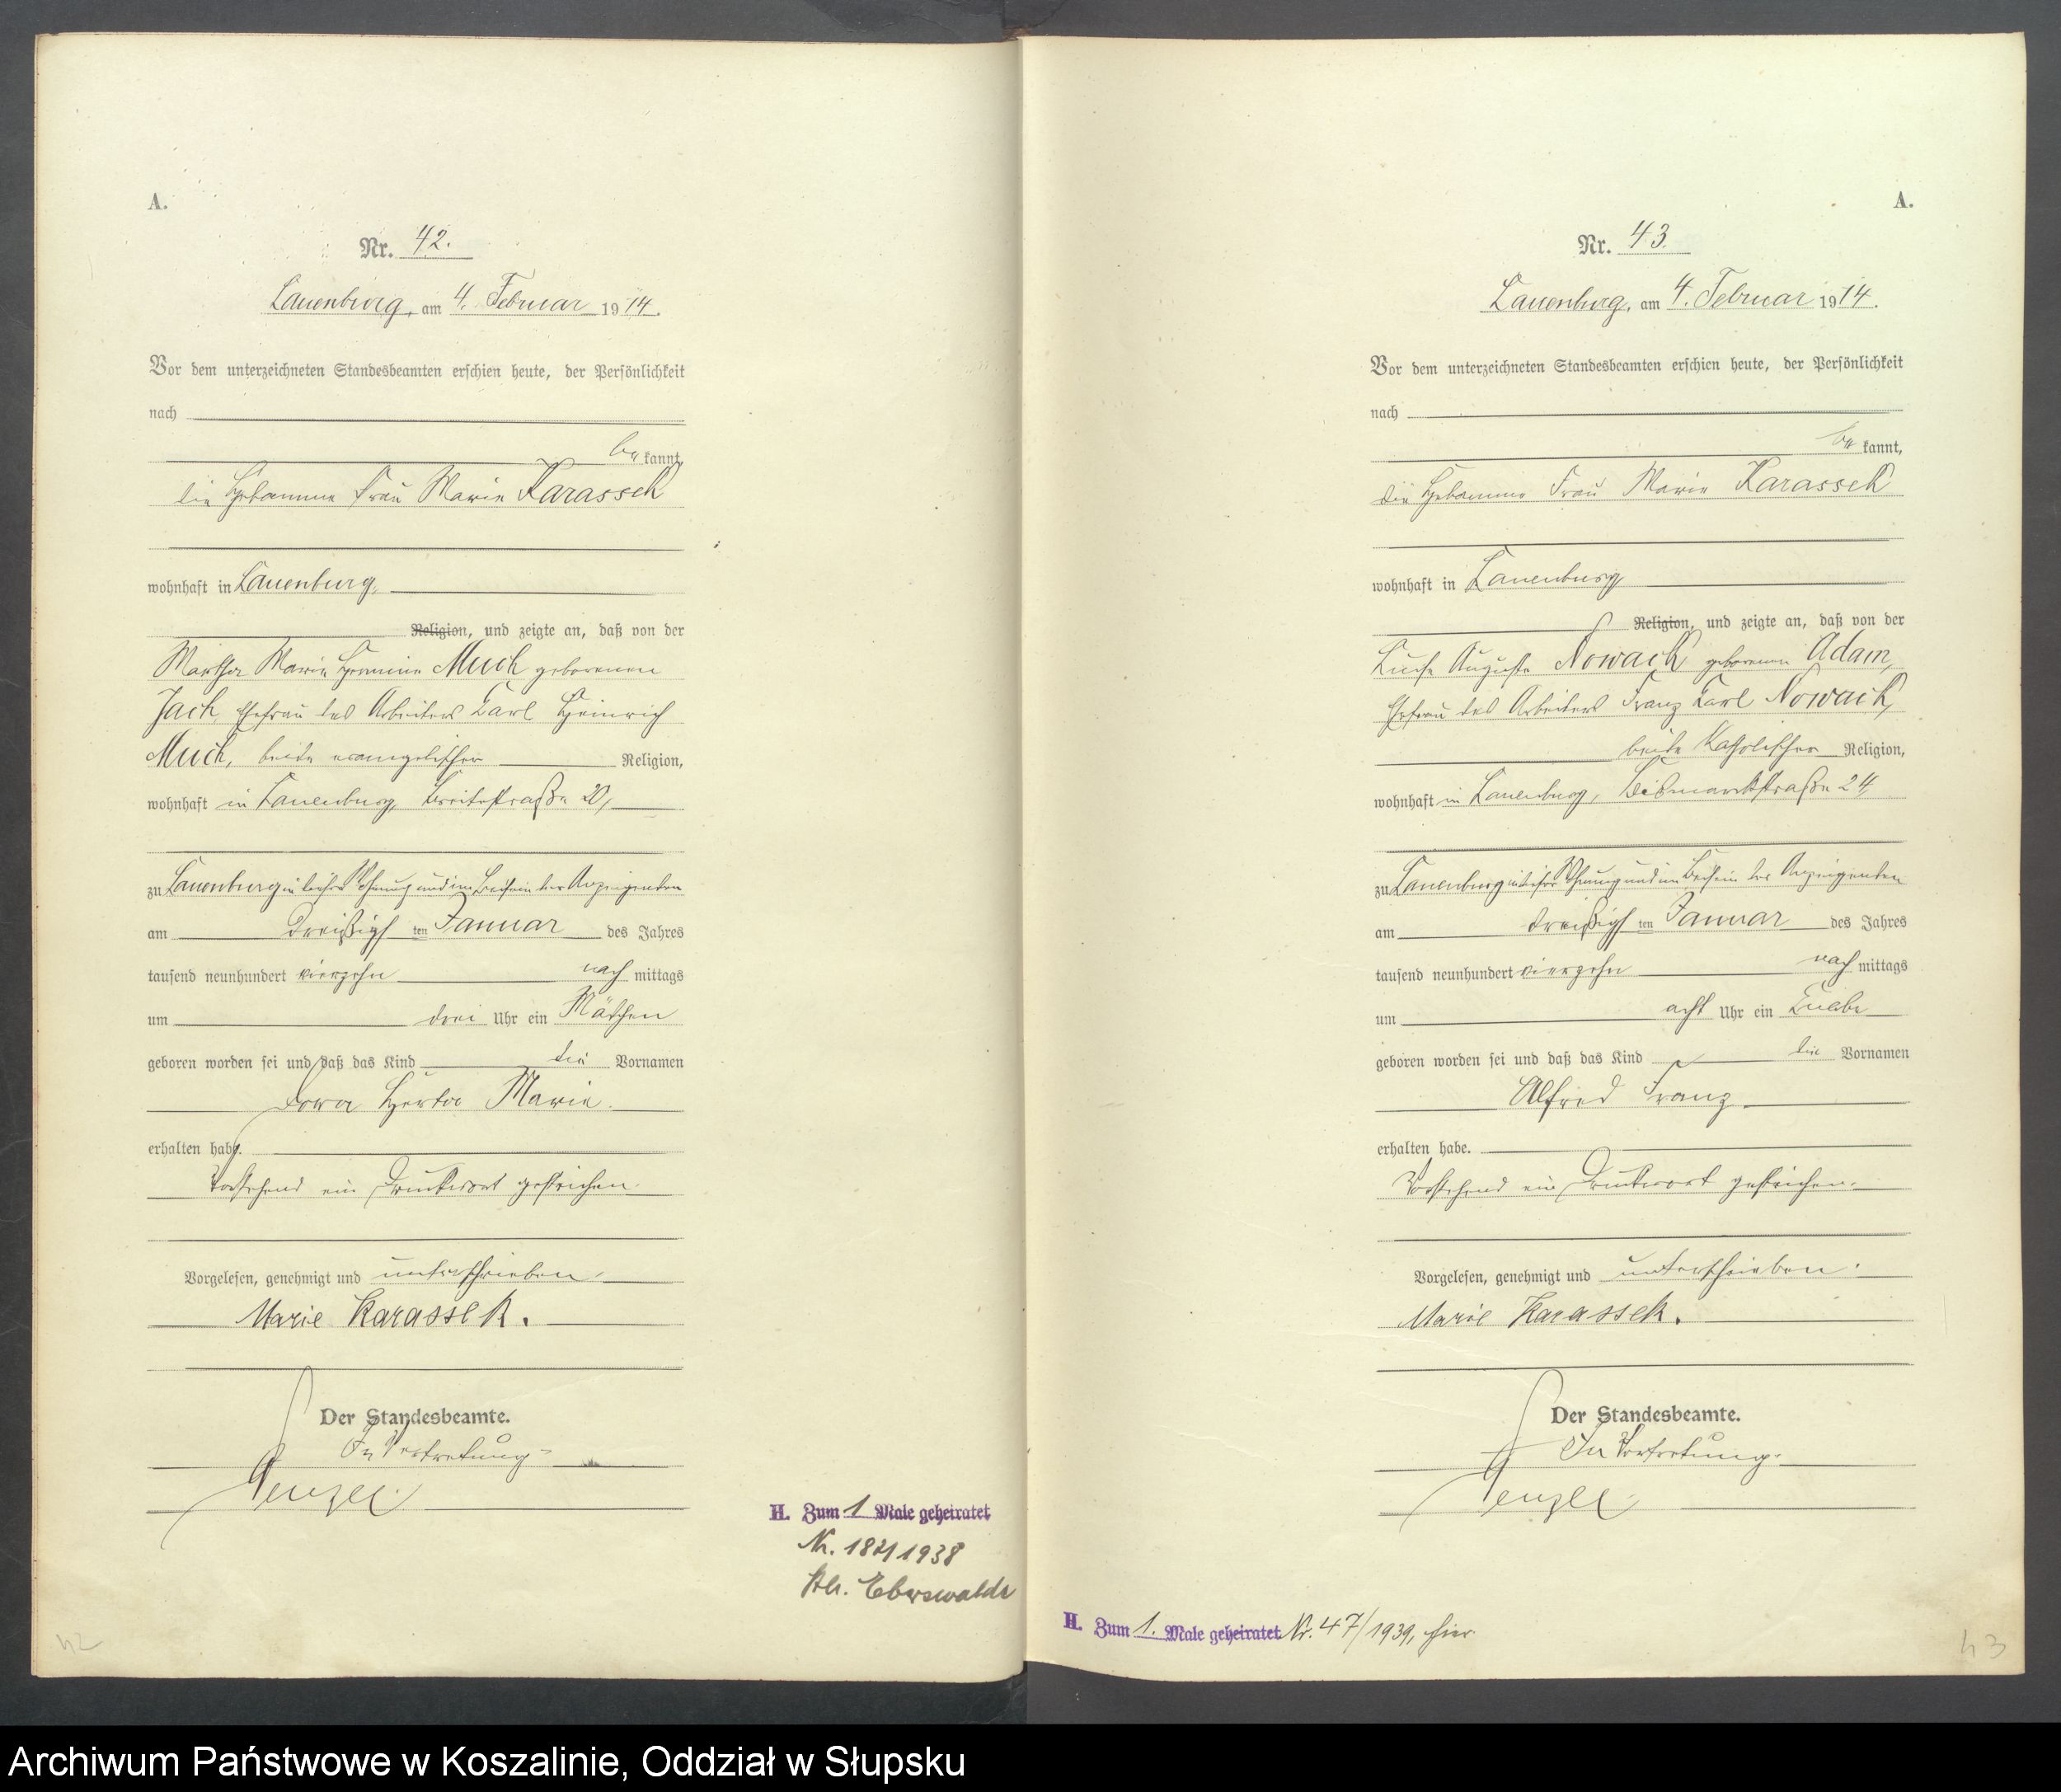 A.
Nr. 42.
Lauenburg, am 4. Februar 1914.
Vor dem unterzeichneten Standesbeamten erschien heute, der Persönlichkeit
nach
be kannt,
die Hebamme Frau Marie Karassek
wohnhaft in Lauenburg,
Religion, und zeigte an, daß von der
Martha Marie Hermine Much geborenen
Jach, Ehefrau des Arbeiters Carl Heinrich
Much, beide evangelischer Religion,
wohnhaft in Lauenburg, Breitestraße 20,
zu Lauenburg in dieser Wohnung und im Beisein der Anzeigenden
am dreißigsten Januar des Jahres
tausend neunhundert vierzehn nach mittags
um drei Uhr ein Mädchen
geboren worden sei und daß das Kind die Vornamen
Dora Herta Marie.
erhalten habe.
Vorstehend ein Druckwort gestrichen.
Vorgelesen, genehmigt und unterschrieben.
Marie Karassek.
Der Standesbeamte.
In Vertretung
H. Zum 1 Male geheiratet
Nr. 1938
Eberswalde
42
A.
Nr. 43.
Lauenburg, am 4. Februar 1914.
Vor dem unterzeichneten Standesbeamten erschien heute, der Persönlichkeit
nach
be kannt,
die Hebamme Frau Marie Karassek
wohnhaft in Lauenburg
Religion, und zeigte an, daß von der
Auguste Nowack geborenen Adam,
Ehefrau des Arbeiters Franz Karl Nowack,
beide katholischer Religion,
wohnhaft in Lauenburg, Bismarckstraße 24
zu Lauenburg in dieser Wohnung und im Beisein der Anzeigenden
am dreißigsten Januar des Jahres
tausend neunhundert vierzehn nach mittags
um acht Uhr ein Knabe
geboren worden sei und daß das Kind die Vornamen
Alfred Franz
erhalten habe.
Vorstehend ein Druckwort gestrichen.
Vorgelesen, genehmigt und unterschrieben.
Marie Karassek.
Der Standesbeamte.
In Vertretung.
H. Zum 1. Male geheiratet Nr. 47/1939, hier
43
Archiwum Państwowe w Koszalinie, Oddział w Słupsku